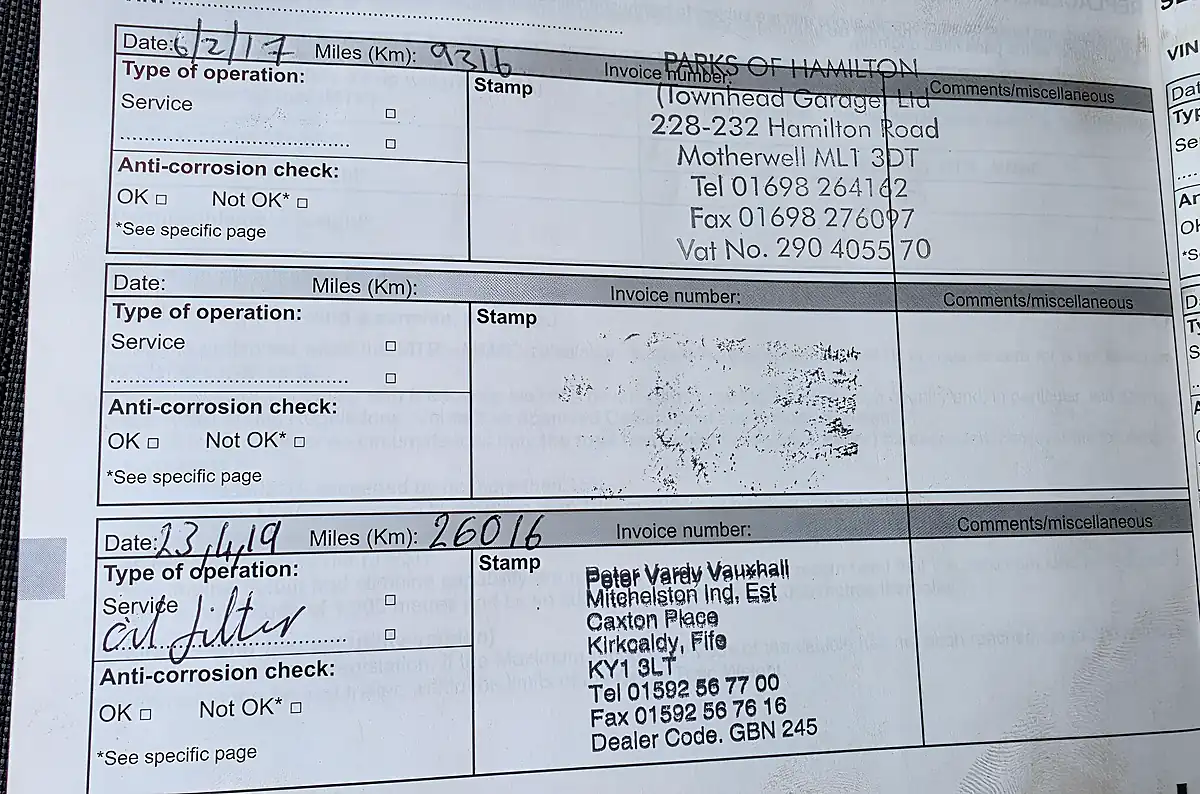 Date: 6/2/17 Miles (Km): 9316 Invoice number: Comments/miscellaneous
Type of operation:
Service
Stamp
PARKS OF HAMILTON
(Townhead Garage) Ltd
228-232 Hamilton Road
Motherwell ML1 3DT
Tel 01698 264162
Fax 01698 276097
Vat No. 290 4055 70
Anti-corrosion check:
OK □ Not OK* □
*See specific page
Date: Miles (Km): Invoice number: Comments/miscellaneous
Type of operation:
Service
Stamp
Anti-corrosion check:
OK □ Not OK* □
*See specific page
Date: 23,4,19 Miles (Km): 26016 Invoice number: Comments/miscellaneous
Type of operation:
Service
oil filter
Stamp
Peter Vardy Vauxhall
Mitchelston Ind. Est
Caxton Place
Kirkcaldy, Fife
KY1 3LT
Tel 01592 56 77 00
Fax 01592 56 76 16
Dealer Code. GBN 245
Anti-corrosion check:
OK □ Not OK* □
*See specific page
VIN